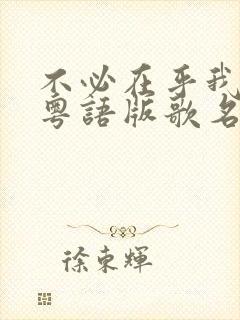 不必在乎我
粵語版歌名
徐東輝